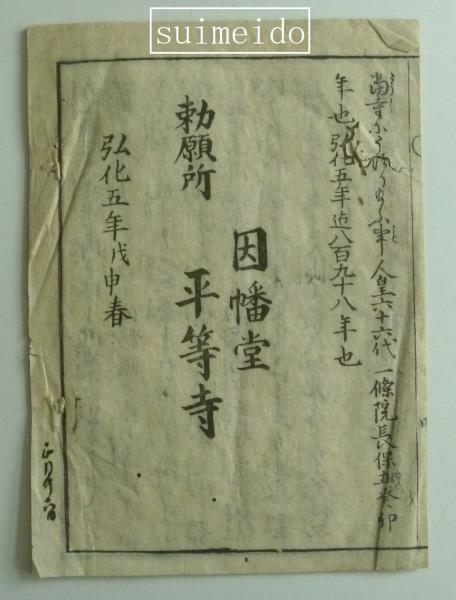 suimeido
人皇六十六代一條院長保五癸卯
年也弘化五年迠八百九十八年也
因幡堂
平等寺
勅願所
弘化五年戊申春